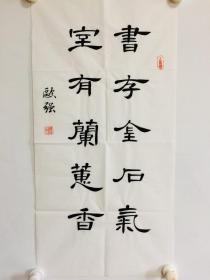 書存金石氣
室有蘭蕙香
歐強